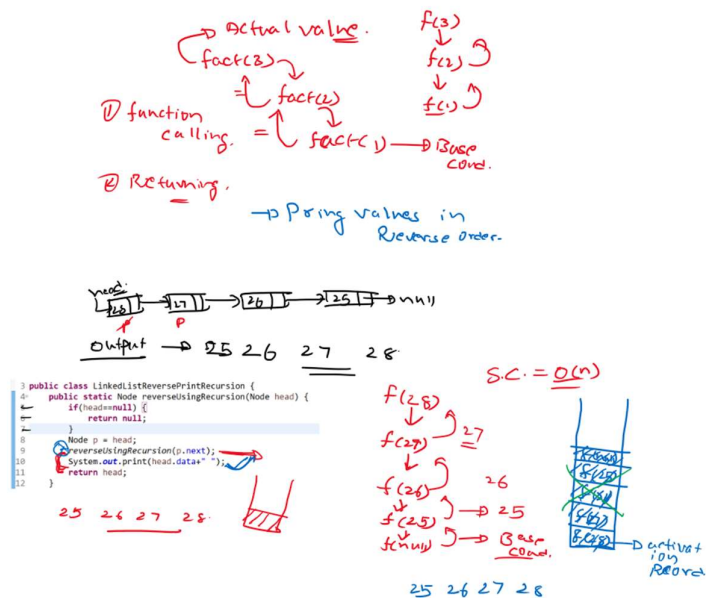 Actual value.
f(3)
fact(3)
f(2)
= fact(2)
f(1)
① function calling.
= fact(1) → Base Cond.
② Returning.
→ Pring values in Reverse order.
head
28 27 26 25 → null
P P
Output → 25 26 27 28
S.C. = O(n)
3 public class LinkedListReversePrintRecursion {
4 public static Node reverseUsingRecursion(Node head) {
if(head==null) {
return null;
7 }
8 Node p = head;
9 reverseUsingRecursion(p.next);
10 System.out.print(head.data+" ");
11 return head;
12 }
25 26 27 28
f(28)
f(27) 27
f(26) 26
f(25) → 25
f(null) → Base Cond.
f(null)
f(25)
f(27)
f(28) → activation Record
25 26 27 28